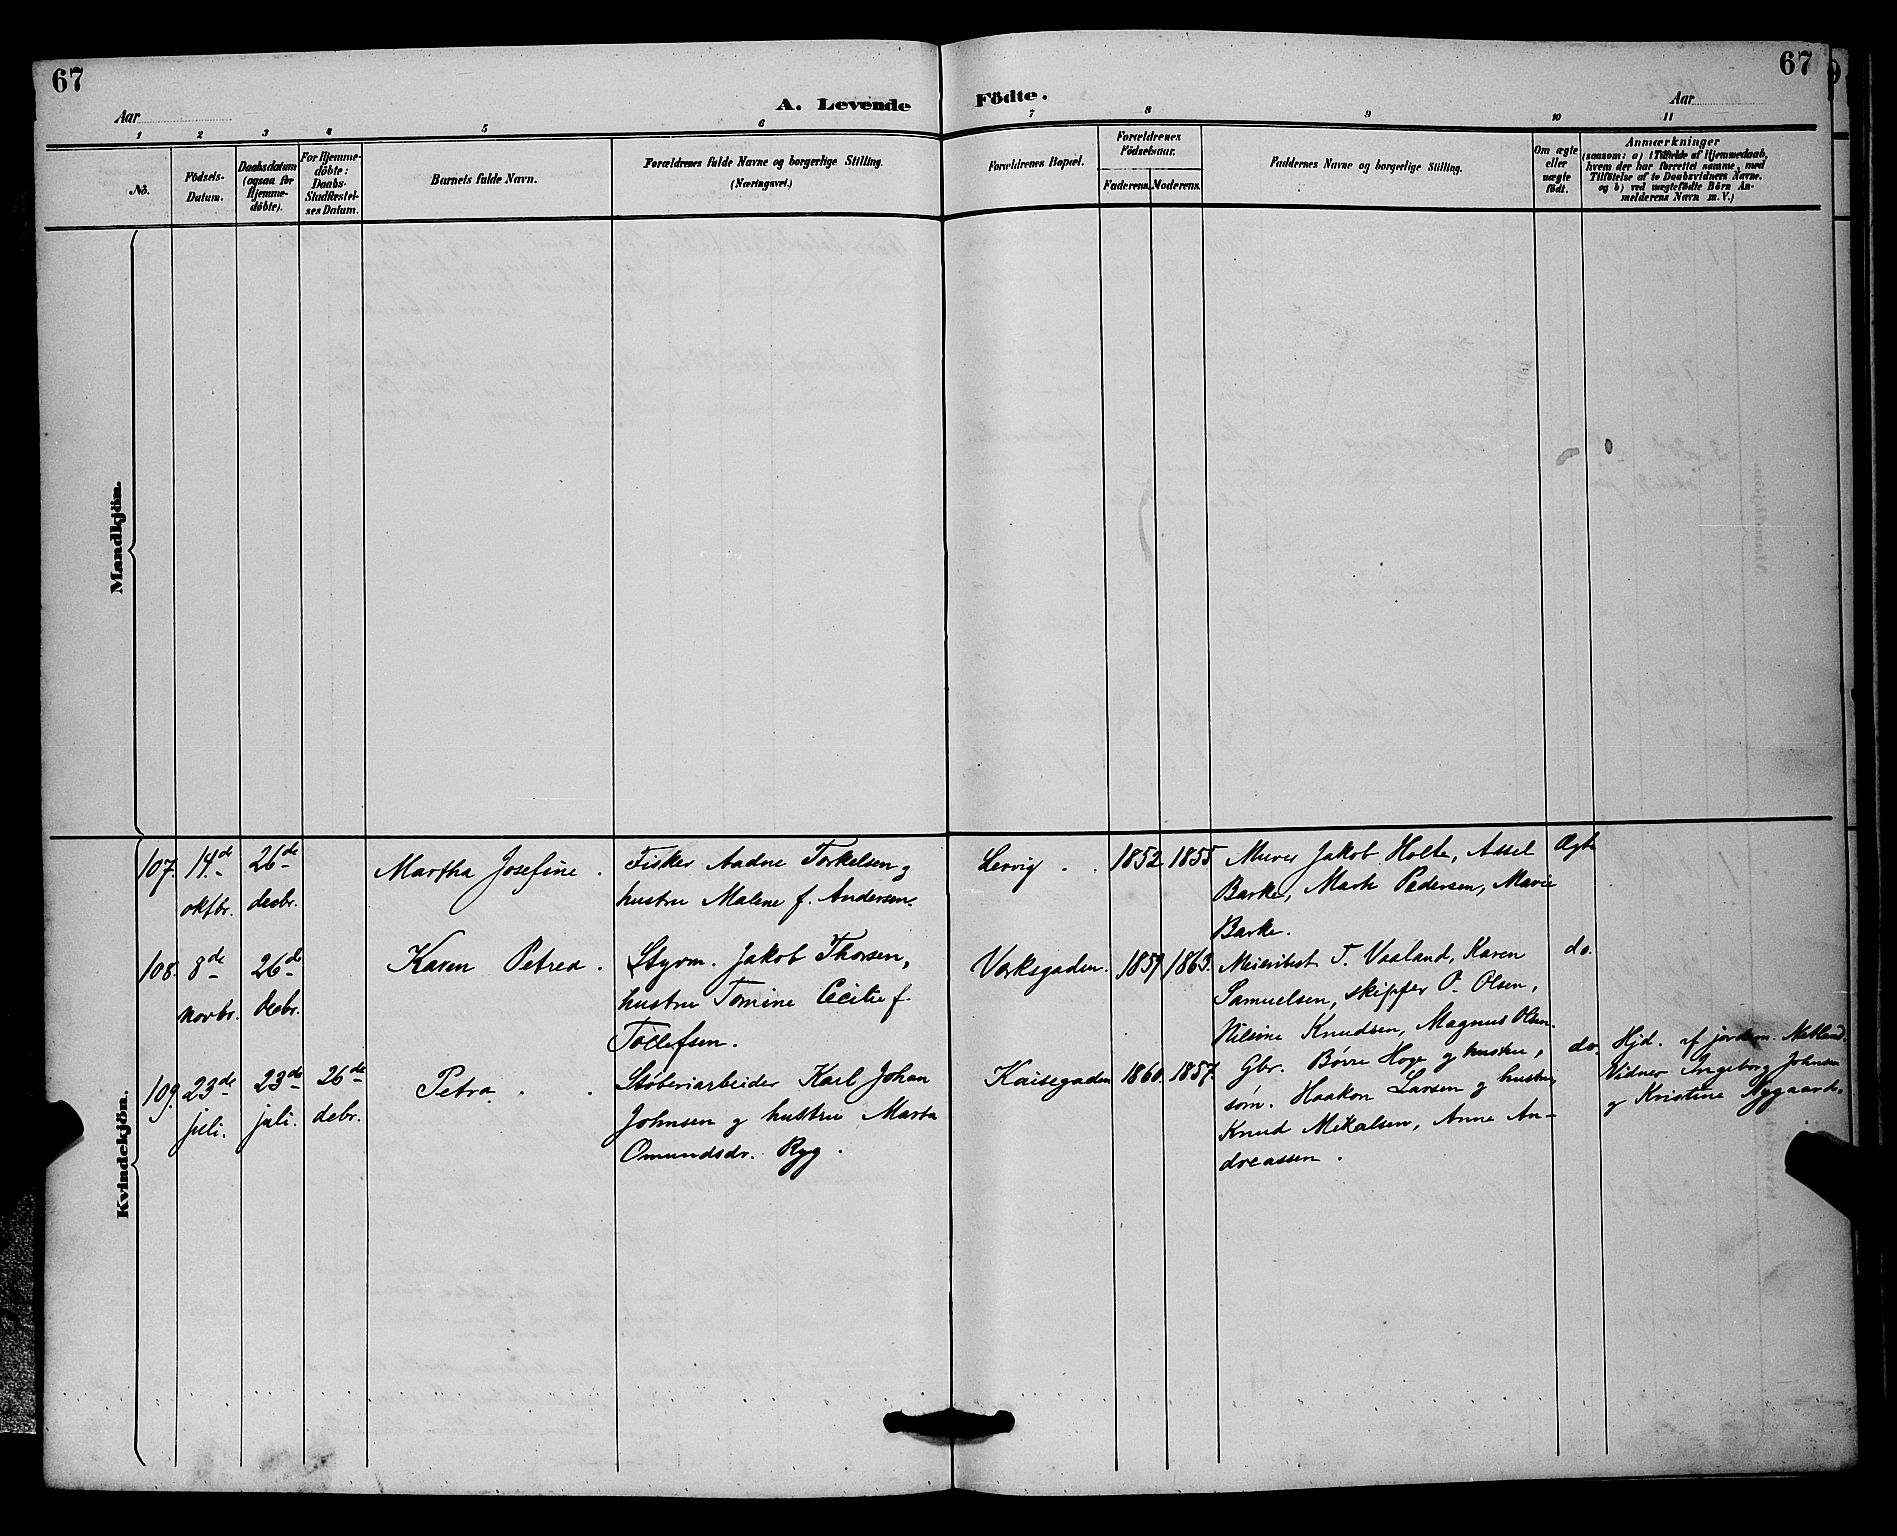 67
67
A. Levende Födte.
Aar
Aar
1 2 3 4 5 6 7 8 9 10 11
No.
Födsels-
Datum.
Daabsdatum
(ogsaa for
Hjemme-
döbte).
For Hjemme-
döbte:
Daabs-
Stadfæstel-
ses Datum.
Barnets fulde Navn.
Forældrenes fulde Navne og borgerlige Stilling.
(Næringsvei.)
Forældrenes Bopæl.
Forældrenes
Födselsaar.
Faderens.
Moderens.
Faddernes Navne og borgerlige Stilling.
Om ægte
eller
uægte
födt.
Anmærkninger
(saasom: a) i Tilfælde af Hjemmedaab,
hvem der har forrettet samme, med
Tilföielse af to Daabsvidners Navne.
og b) ved uægtefödte Börn An-
melderens Navn m. V.)
Mandkjön.
Kvindekjön.
107. 14de oktbr.
26de desbr.
Martha Josefine.
Fisker Aadne Torkelsen og
hustru Malene f. Andersen.
Lervig.
1852 1855
Murer Jakob Holte, Assel
Barke, Marte Pedersen, Marie
Barke.
Ægte
108. 8de novbr.
26de desbr.
Karen Petrea.
Styrm. Jakob Thorsen,
hustru Tomine Cecilie f.
Tollefsen.
Verksgaden.
1857 1863.
Meieribest. T. Vaaland, Karen
Samuelsen, skipper O. Olsen,
Nilsine Knudsen, Magnus Olsen.
do.
109. 23de juli.
23de juli.
26de debr.
Petra.
Støberiarbeider Karl Johan
Johnsen og hustru Marta
Omundsdr. Ryg.
Kaisegaden
1860. 1857.
Gbr. Børre Hoge og hustru,
søm. Haakon Larsen og hustru,
Knud Mikalsen, Anne An-
dreassen.
do.
Hjd. af jordem. Netland.
Vidner Ingeborg Johnsen
og Kristine Nygaard.